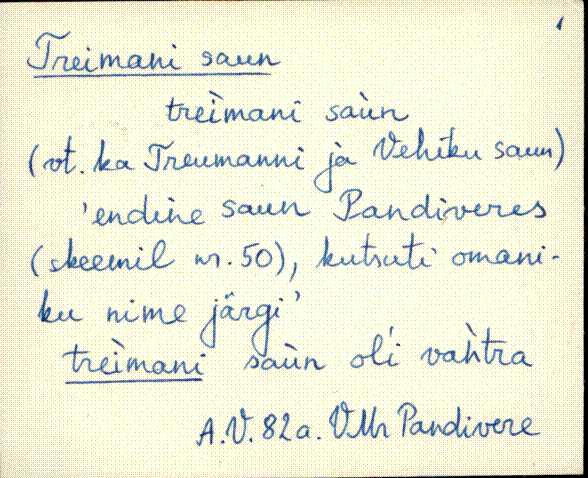 1
Treimani saun
trèimani saùn
(vt. ka Treumanni ja Vehiku saun)
'endine saun Pandiveres
(skeemil nr. 50), kutsuti omani-
ku nime järgi'
trèimani saùn ol'i vah̀tra
A.V. 82a. VMr Pandivere